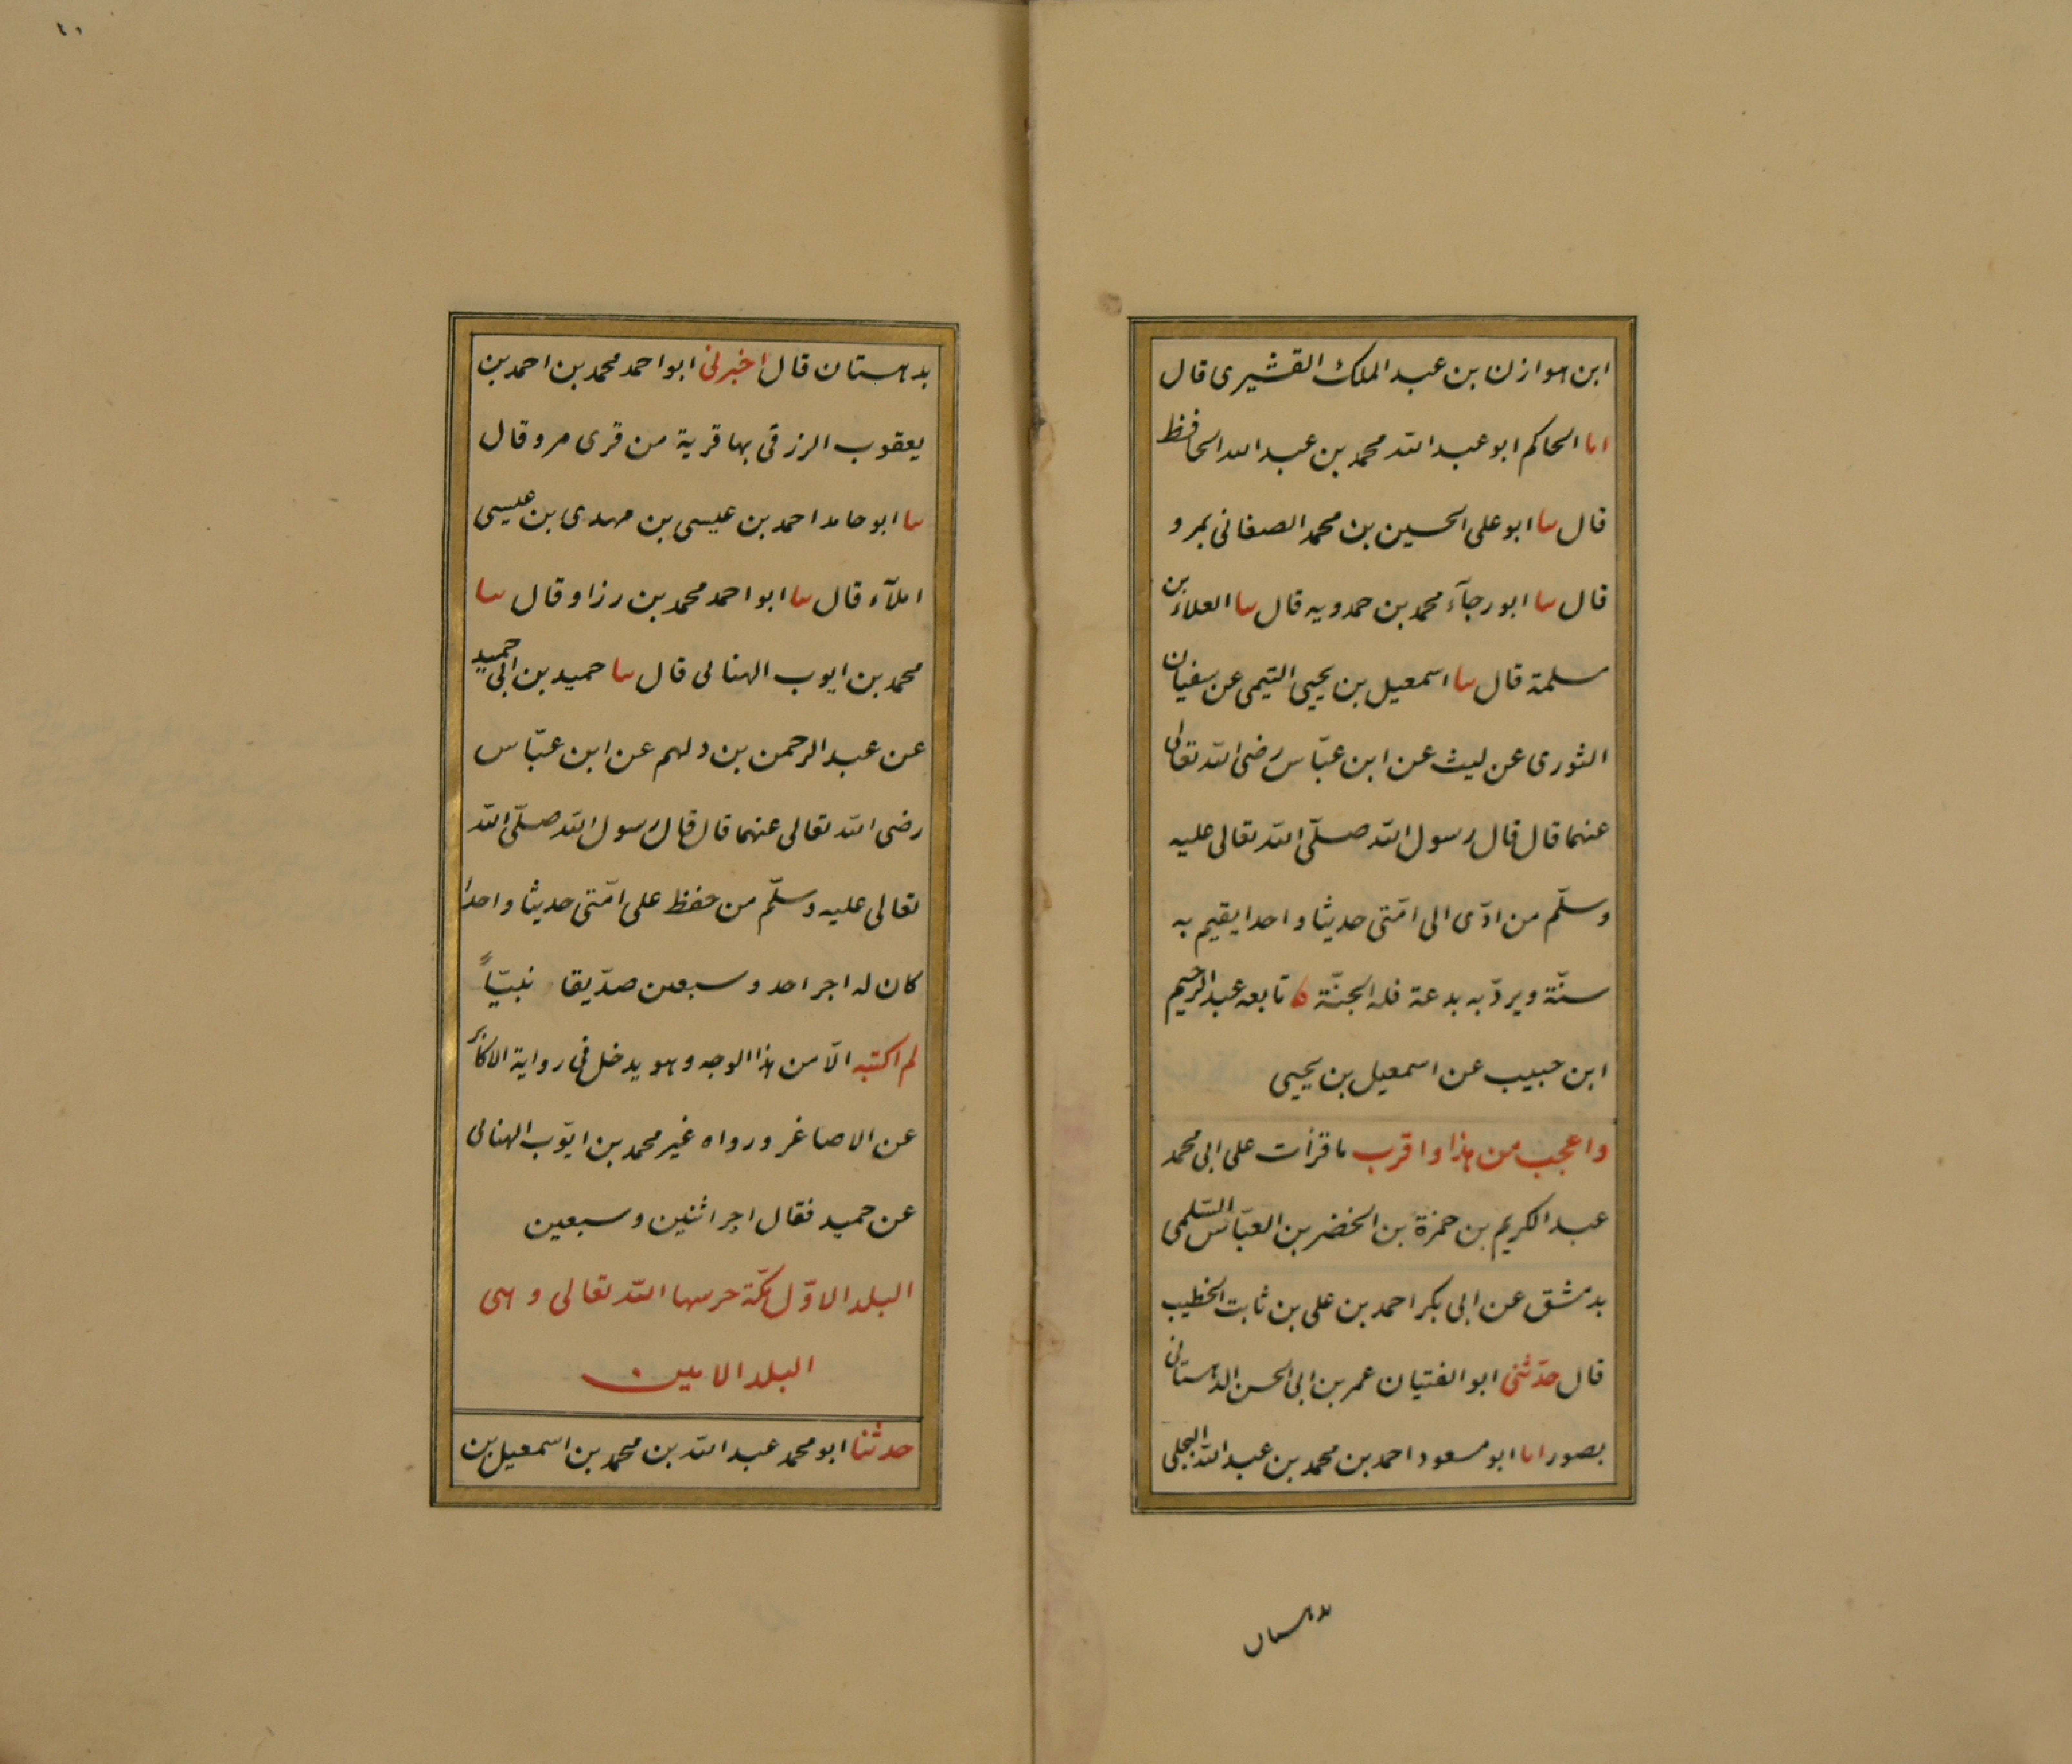 ابن هوازن بن عبد الملك القشيرى قال
انا الحاكم ابو عبد الله محمد بن عبد الله الحافظ
قال سا ابو على الحسين بن محمد الصغانى بمرو
قال سا ابو رجآء محمد بن حمدويه قال سا العلاء بن
مسلمة قال سا اسمعيل بن يحيى التيمى عن سفيان
الثورى عن ليث عن ابن عبّاس رضى الله تعالى
عنهما قال قال رسول الله صلّى الله تعالى عليه
وسلّم من ادّى الى امّتى حديثا واحدا يقيم به
سنّة ويردّ به بدعة فله الجنّة ه تابعه عبد الرحيم
ابن حبيب عن اسمعيل بن يحيى
واعجب من هذا واقرب ما قرأت على ابى محمد
عبد الكريم بن حمزة بن الخضر بن العبّاس السّلمى
بدمشق عن ابى بكر احمد بن على بن ثابت الخطيب
قال حدّثنى ابو الفتيان عمر بن ابى الحسن الدهستانى
بصور انا ابو مسعود احمد بن محمد بن عبد الله البجلى
بدهستان
١٠
بدهستان قال اخبرنى ابو احمد محمد بن احمد بن
يعقوب الزرقى بها قرية من قرى مرو قال
سا ابو حامد احمد بن عيسى بن مهدى بن عيسى
املآء قال سا ابو احمد محمد بن رزاو قال سا
محمد بن ايوب الهنالى قال سا حميد بن ابى حميد
عن عبد الرحمن بن دلهم عن ابن عبّاس
رضى الله تعالى عنهما قال قال رسول الله صلّى الله
تعالى عليه وسلّم من حفظ على امّتى حديثا واحدا
كان له اجر احد وسبعين صدّيقا نبيّاً
لم اكتبه الّا من هذا الوجه وهو يدخل فى رواية الاكابر
عن الاصاغر ورواه غير محمد بن ايّوب الهنالى
عن حميد فقال اجر اثنين وسبعين
البلد الاوّل مكّة حرسها الله تعالى وهى
البلد الامين
حدثنا ابو محمد عبد الله بن محمد بن اسمعيل بن